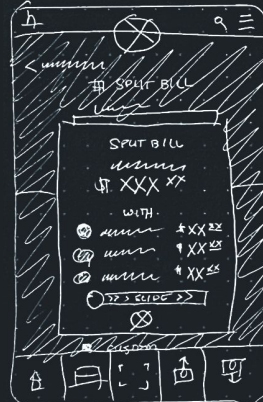 SPLIT BILL
SPLIT BILL
$ XXX XX
WITH
$ XX XX
$ XX XX
$ XX XX
>>> SLIDE >>
CUSTOM